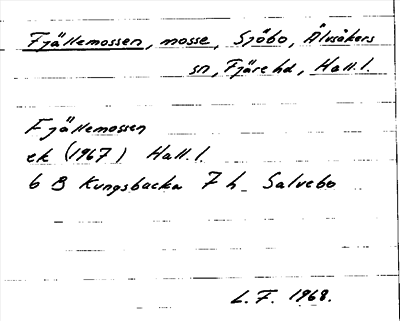 Fjällemossen, mosse, Sjöbo, Älvsåkers
sn, Fjäre hd, Hall. l.
Fjällemossen
ek (1967) Hall. l.
6 B Kungsbacka 7 h Salvebo
L. F. 1968.